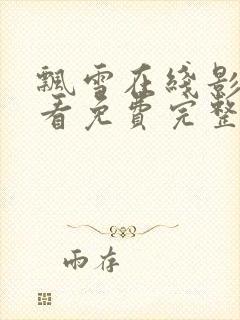 飄雪在綫影
看免費完整
雨存